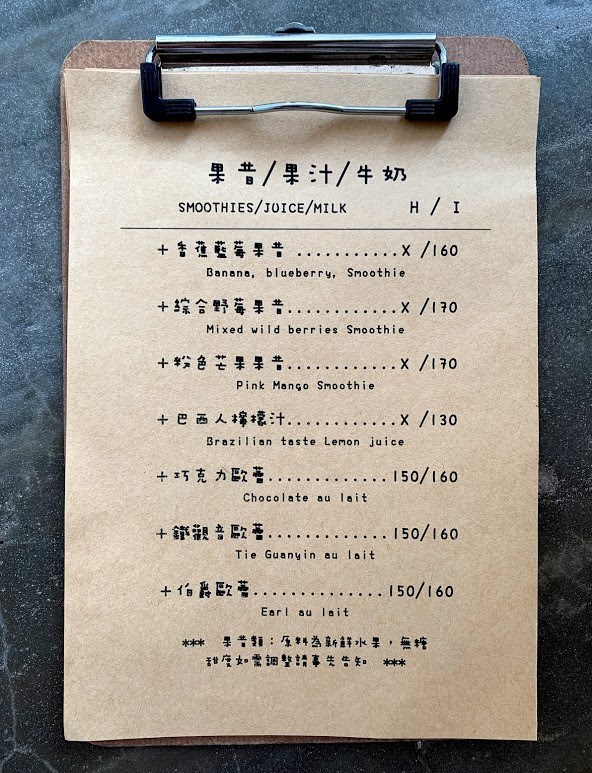 果昔/果汁/牛奶
SMOOTHIES/JUICE/MILK H / I
+香蕉藍莓果昔 ...........X /160
Banana, blueberry, Smoothie
+綜合野莓果昔...........X /170
Mixed wild berries Smoothie
+粉色芒果果昔...........X /170
Pink Mango Smoothie
+巴西人檸檬汁...........X /130
Brazilian taste Lemon juice
+巧克力歐蕾............150/160
Chocolate au lait
+鐵觀音歐蕾............150/160
Tie Guanyin au lait
+伯爵歐蕾.............150/160
Earl au lait
*** 果昔類：原料為新鮮水果，無糖
甜度如需調整請事先告知 ***